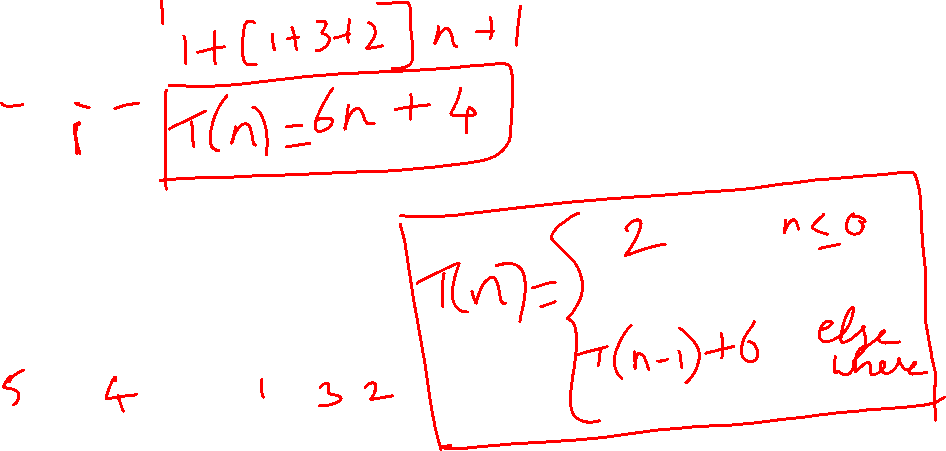 1+[1+3+2]n+1
T(n)=6n+4
T(n)={ 2 n≤0
T(n-1)+6 else where
5 4 1 3 2